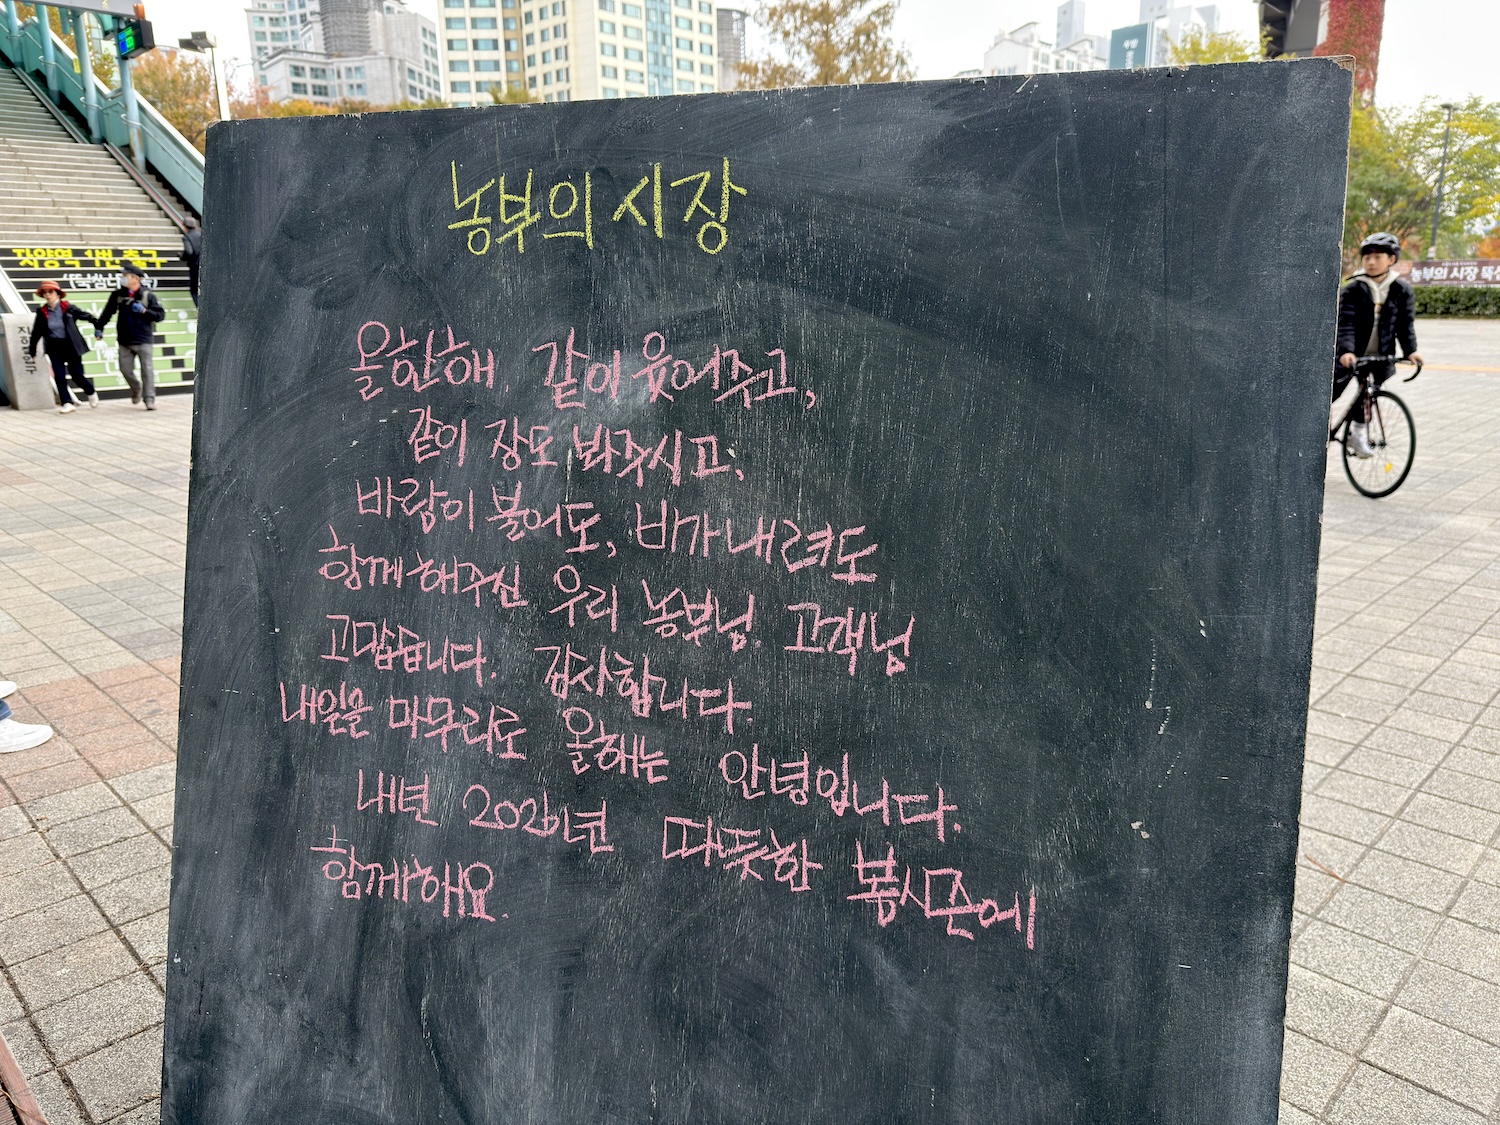 농부의 시장
올한해 같이 웃어주고,
같이 장도 봐주시고,
바람이 불어도, 비가 내려도
함께 해주신 우리 농부님 고객님
고맙습니다. 감사합니다.
내일을 마무리로 올해는 안녕입니다.
내년 2026년 따뜻한 봄시즌에
함께해요.
자양역 1번 출구
농부의 시장 뚝섬